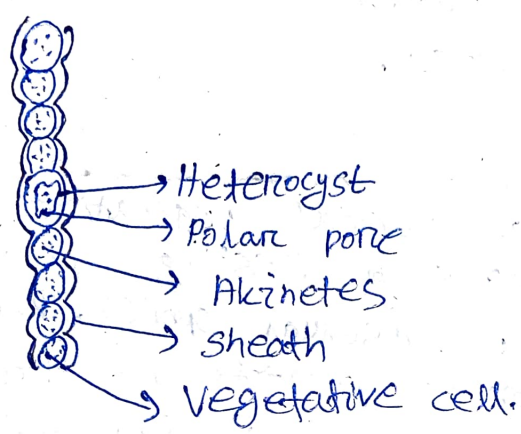 Heterocyst
Polar pore
Akinetes
sheath
vegetative cell.